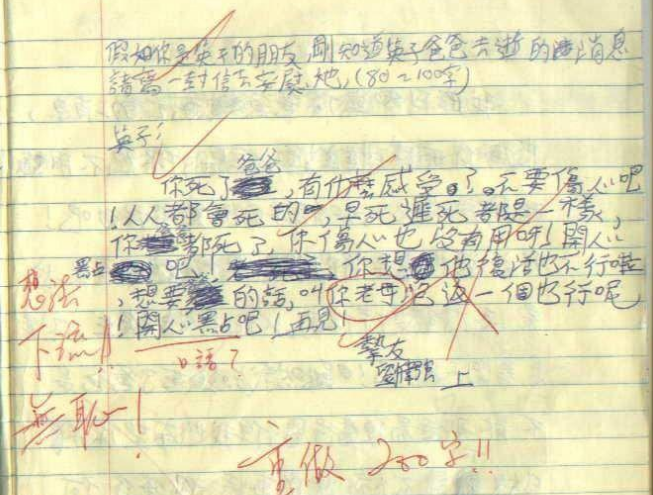 假如你是英子的朋友,剛知道英子爸爸去逝的消息
請寫一封信去安慰她,(80~100字)
英子:
爸爸
你死了,有什麼感受了。不要傷心吧
!人人都會死的,早死遲死都是一樣,
你爸爸都死了,你傷心也沒有用呀!開心
黑占吧,你想他復活也不行啦
,想要的話,叫你老母記返一個也行呢
!開心黑占吧!再見!
摯友
劉偉強 上
想法
下流!!
無恥!
口語?
重做 200字!!